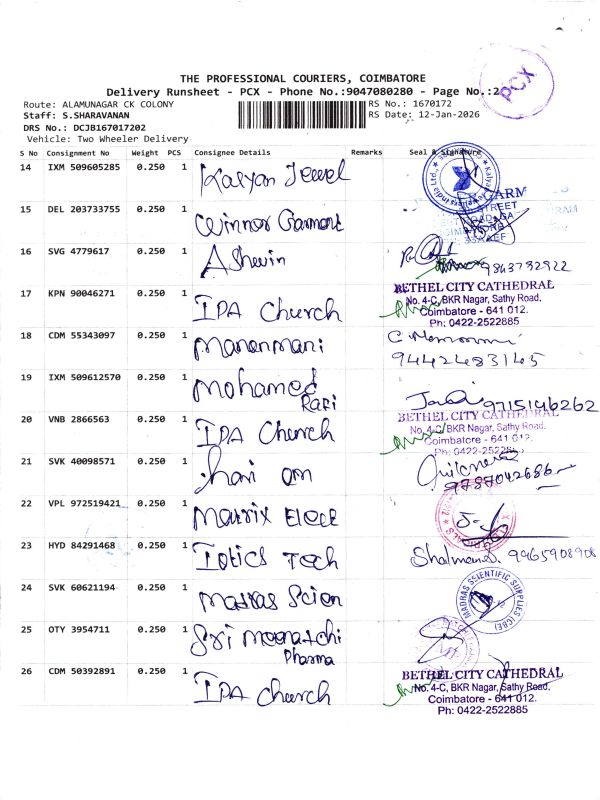 PCX
THE PROFESSIONAL COURIERS, COIMBATORE
Delivery Runsheet - PCX - Phone No.:9047080280 - Page No.:2
Route: ALAMUNAGAR CK COLONY
RS No.: 1670172
Staff: S.SHARAVANAN
RS Date: 12-Jan-2026
DRS No.: DCJB167017202
Vehicle: Two Wheeler Delivery
S No Consignment No Weight PCS Consignee Details Remarks Seal & Signature
14 IXM 509605285 0.250 1 Kalyan Jewel
15 DEL 203733755 0.250 1 Winner Garment
STREET
16 SVG 4779617 0.250 1 Ashwin 9863792922
17 KPN 90046271 0.250 1 IPA Church
BETHEL CITY CATHEDRAL
No. 4-C, BKR Nagar, Sathy Road,
Coimbatore - 641 012.
Ph: 0422-2522885
18 CDM 55343097 0.250 1 Manonmani
9442483145
19 IXM 509612570 0.250 1 Mohamed
Rafi
9715146262
20 VNB 2866563 0.250 1 IPA Church
BETHEL CITY CATHEDRAL
No. 4-C, BKR Nagar, Sathy Road,
Coimbatore - 641 012.
Ph: 0422-2522885
21 SVK 40098571 0.250 1 hari om
9787042686
22 VPL 972519421 0.250 1 Matrix Elect
23 HYD 84291468 0.250 1 Iotics Tech
9965908908
24 SVK 60621194 0.250 1 Madras Scien
MADRAS SCIENTIFIC SUPPLIES (CBE)
25 OTY 3954711 0.250 1 Sri Meenatchi
Pharma
26 CDM 50392891 0.250 1 IPA Church
BETHEL CITY CATHEDRAL
No. 4-C, BKR Nagar, Sathy Road,
Coimbatore - 641 012.
Ph: 0422-2522885